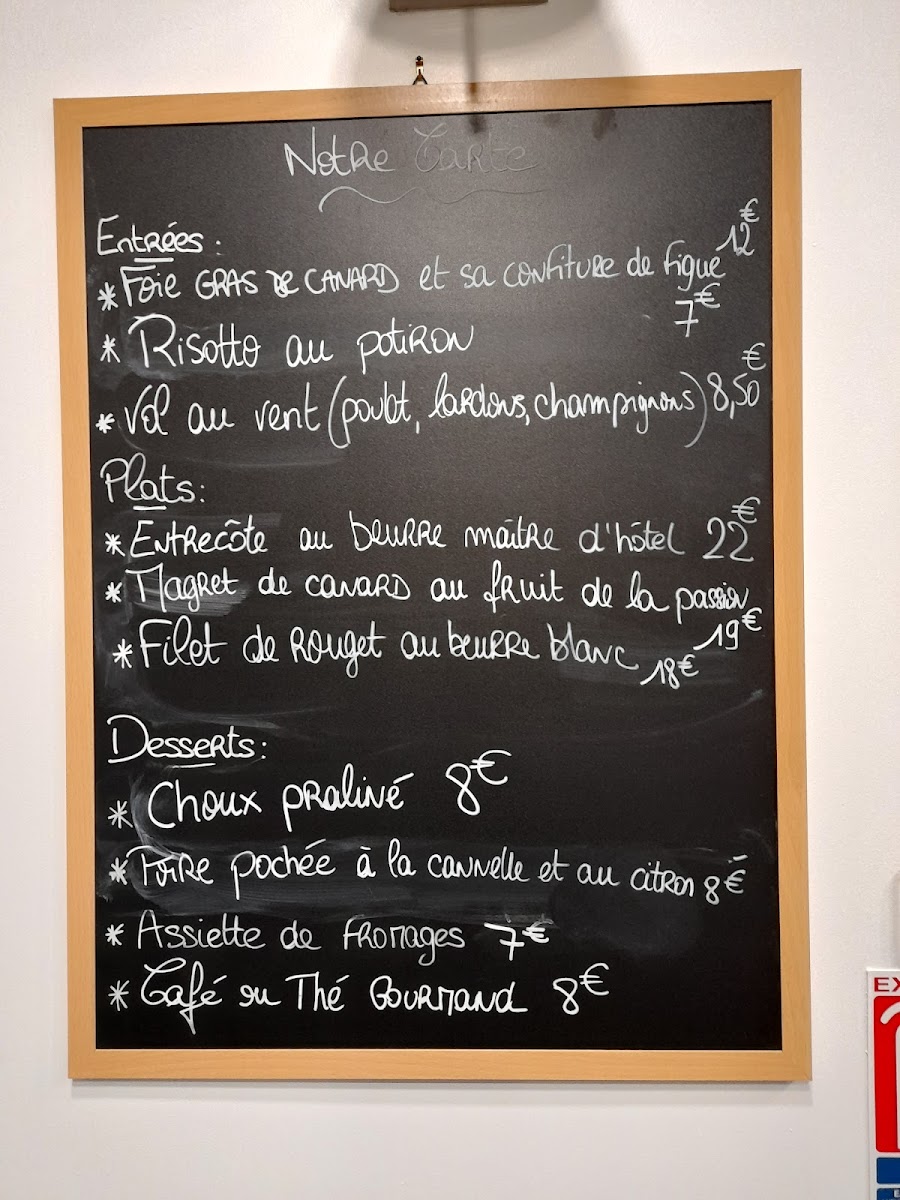 Notre Carte
Entrées :
* Foie GRAS de CANARD et sa confiture de figue 12€
* Risotto au potiron 7€
* Vol au vent (poulet, lardons, champignons) 8,50€
Plats :
* Entrecôte au beurre maître d'hôtel 22€
* Magret de canard au fruit de la passion
19€
* Filet de rouget au beurre blanc 18€
Desserts :
* Choux praliné 8€
* Poire pochée à la cannelle et au citron 8€
* Assiette de fromages 7€
* Café ou Thé Gourmand 8€
EX